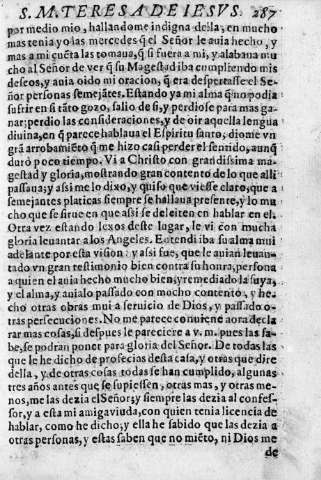 S. M. TERESA DE IESVS. 287
por medio mio, hallandome indigna della, en mucho
mas tenia yo las mercedes q̃ el Señor le auia hecho, y
mas a mi cuẽta las tomaua, q̃ si fuera a mi, y alabaua mu
cho al Señor de ver q̃ su Magestad iba cumpliendo mis
deseos, y auia oido mi oracion, q̃ era despertasse el Se-
ñor personas semejãtes. Estando ya mi alma q̃ no podia
sufrir en si tãto gozo, salio de si, y perdiose para mas ga-
nar: perdio las consideraciones, y de oir aquella lengua
diuina, en q̃ parece hablaua el Espiritu santo, diome vn
grã arrobamiẽto q̃ me hizo casi perder el sentido, aunq̃
duró poco tiempo. Vi a Christo con grandissima ma-
gestad y gloria, mostrando gran contento de lo que alli
passaua; y assi me lo dixo, y quiso que viesse claro, que a
semejantes platicas siempre se hallaua presente, y lo mu
cho que se sirue en que assi se deleiten en hablar en el.
Otra vez estando lexos deste lugar, le vi con mucha
gloria leuantar a los Angeles. Entendi iba su alma mui
adelante por esta vision: y assi fue, que le auian leuan-
tado vn gran testimonio bien contra su honra, persona
a quien el auia hecho mucho bien, y remediado la suya,
y el alma, y auialo passado con mucho contento, y he-
cho otras obras mui a seruicio de Dios, y passado o-
tras persecuciones. No me parece conuiene aora decla
rar mas cosas, si despues le pareciere a v. m. pues las sa-
be, se podran poner para gloria del Señor. De todas las
que le he dicho de profecias desta casa, y otras que dire
della, y de otras cosas todas se han cumplido, algunas
tres años antes que se supiessen, otras mas, y otras me-
nos, me las dezia el Señor; y siempre las dezia al confes-
sor, y a esta mi amiga viuda, con quien tenia licencia de
hablar, como he dicho; y ella he sabido que las dezia a
otras personas, y estas saben que no miẽto, ni Dios me
de